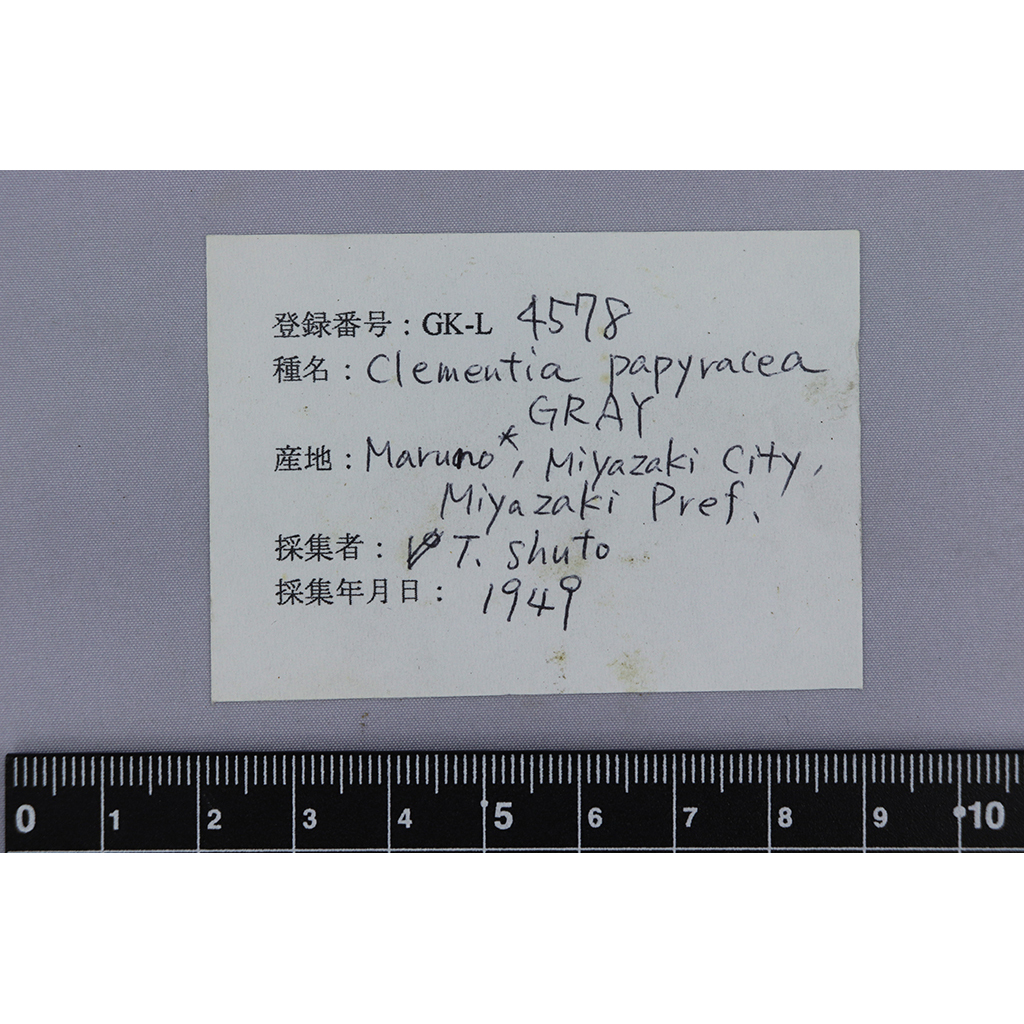 登録番号：GK-L 4578
種名：Clementia papyracea
GRAY
産地：Maruno*, Miyazaki City,
Miyazaki Pref.
採集者： T. Shuto
採集年月日： 1949
0 1 2 3 4 5 6 7 8 9 10